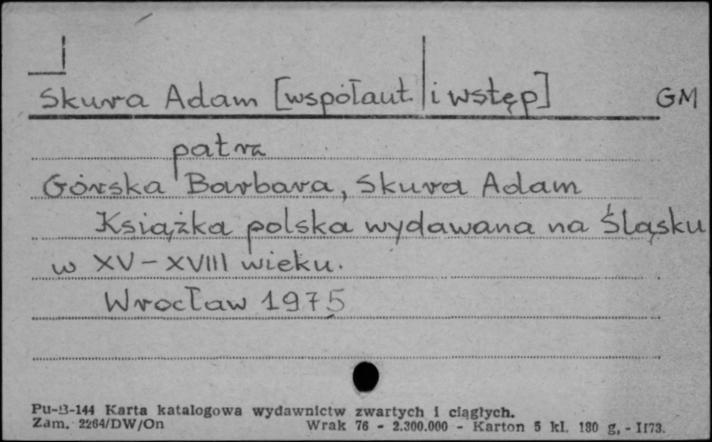 Skura Adam [współaut. i wstęp] GM
patrz
Górska Barbara, Skura Adam
Książka polska wydawana na Śląsku
w XV-XVIII wieku.
Wrocław 1975
Pu-B-144 Karta katalogowa wydawnictw zwartych i ciągłych.
Zam. 2264/DW/On Wrak 76 - 2.300.000 - Karton 5 kl. 180 g, - II73.